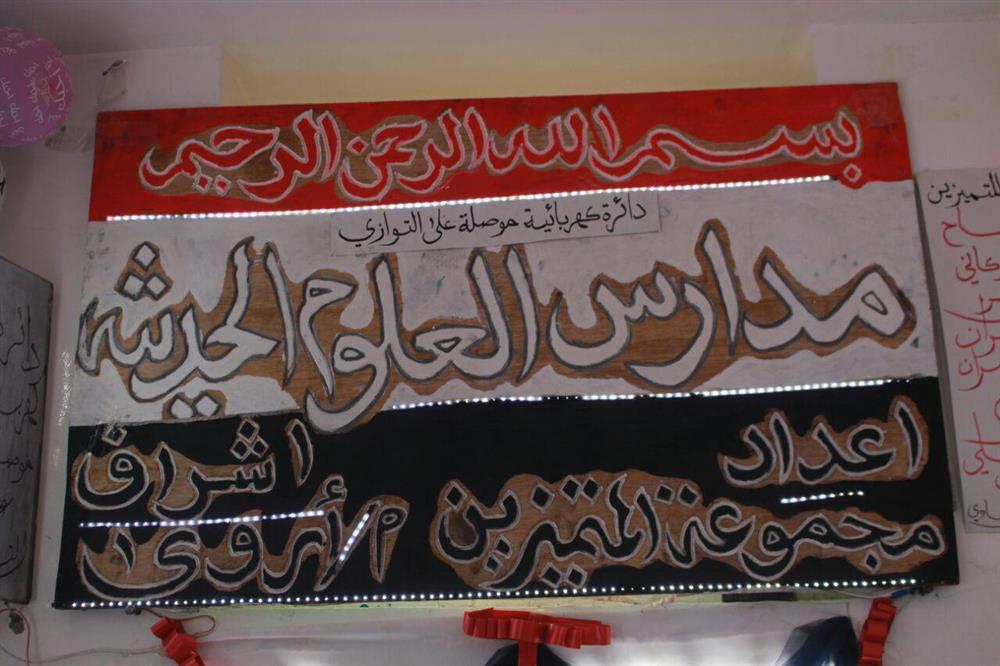 بسم الله الرحمن الرحيم
دائرة كهربائية موصلة على التوازي
مدارس العلوم الحديثه
اعداد
مجموعة المتميزين
اشراف
م/أروى
للتميزين
دائر
كهرب